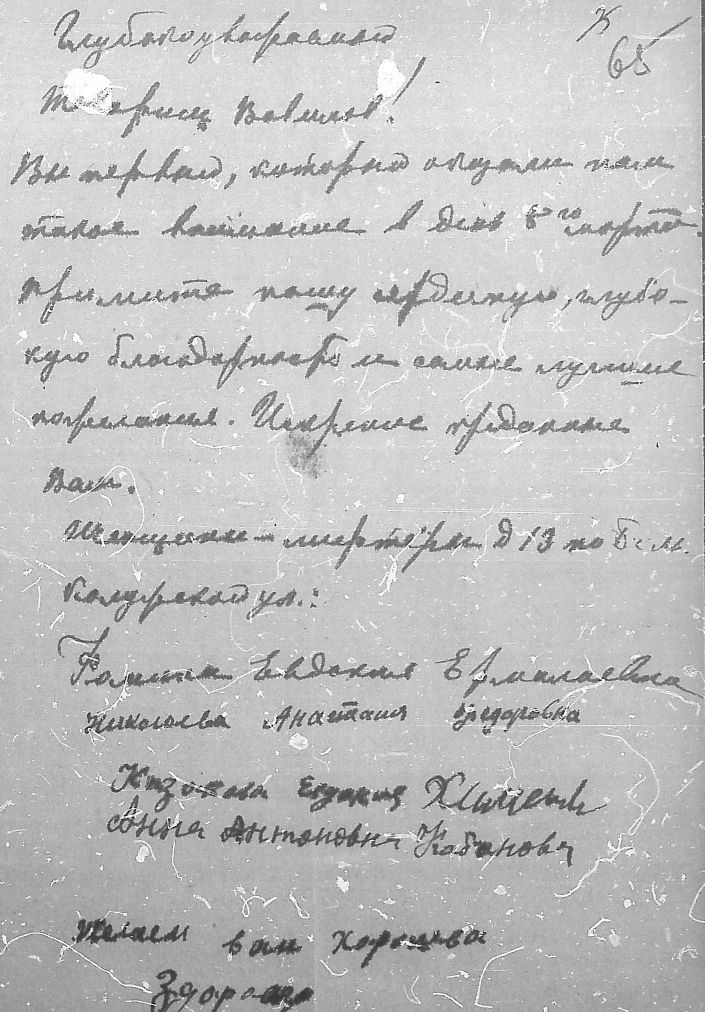 65
Глубокоуважаемый
Товарищ Вавилов!
Вы первый, который оказали нам
такое внимание в день 8го марта.
Примите нашу сердечную, глубо-
кую благодарность и самые лучшие
пожелания. Искренне преданные
Вам.
Женщины – лифтеры д 13 по Бол.
Калужской ул.:
Евдокия Ермолаевна
Николаева Анастасия Федоровна
Казакова Евдокия
Анна Антоновна Кабанова
желаем вам хорошева
Здоровья